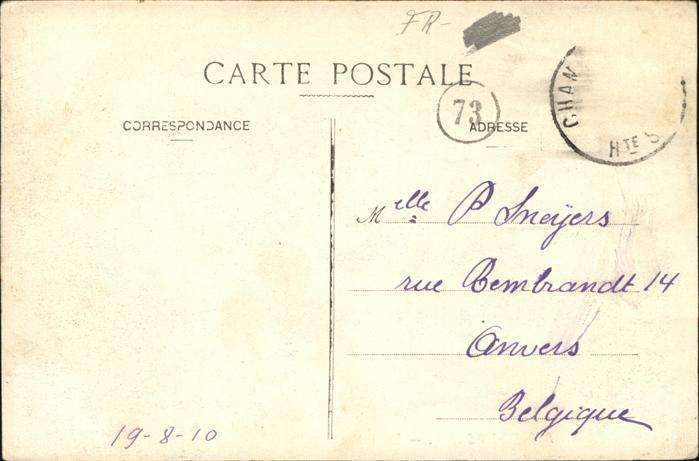 FR-
CARTE POSTALE
73
CHAM
HTE S
CORRESPONDANCE
ADRESSE
Melle P Sneyers
rue Rembrandt 14
Anvers
Belgique
19-8-10